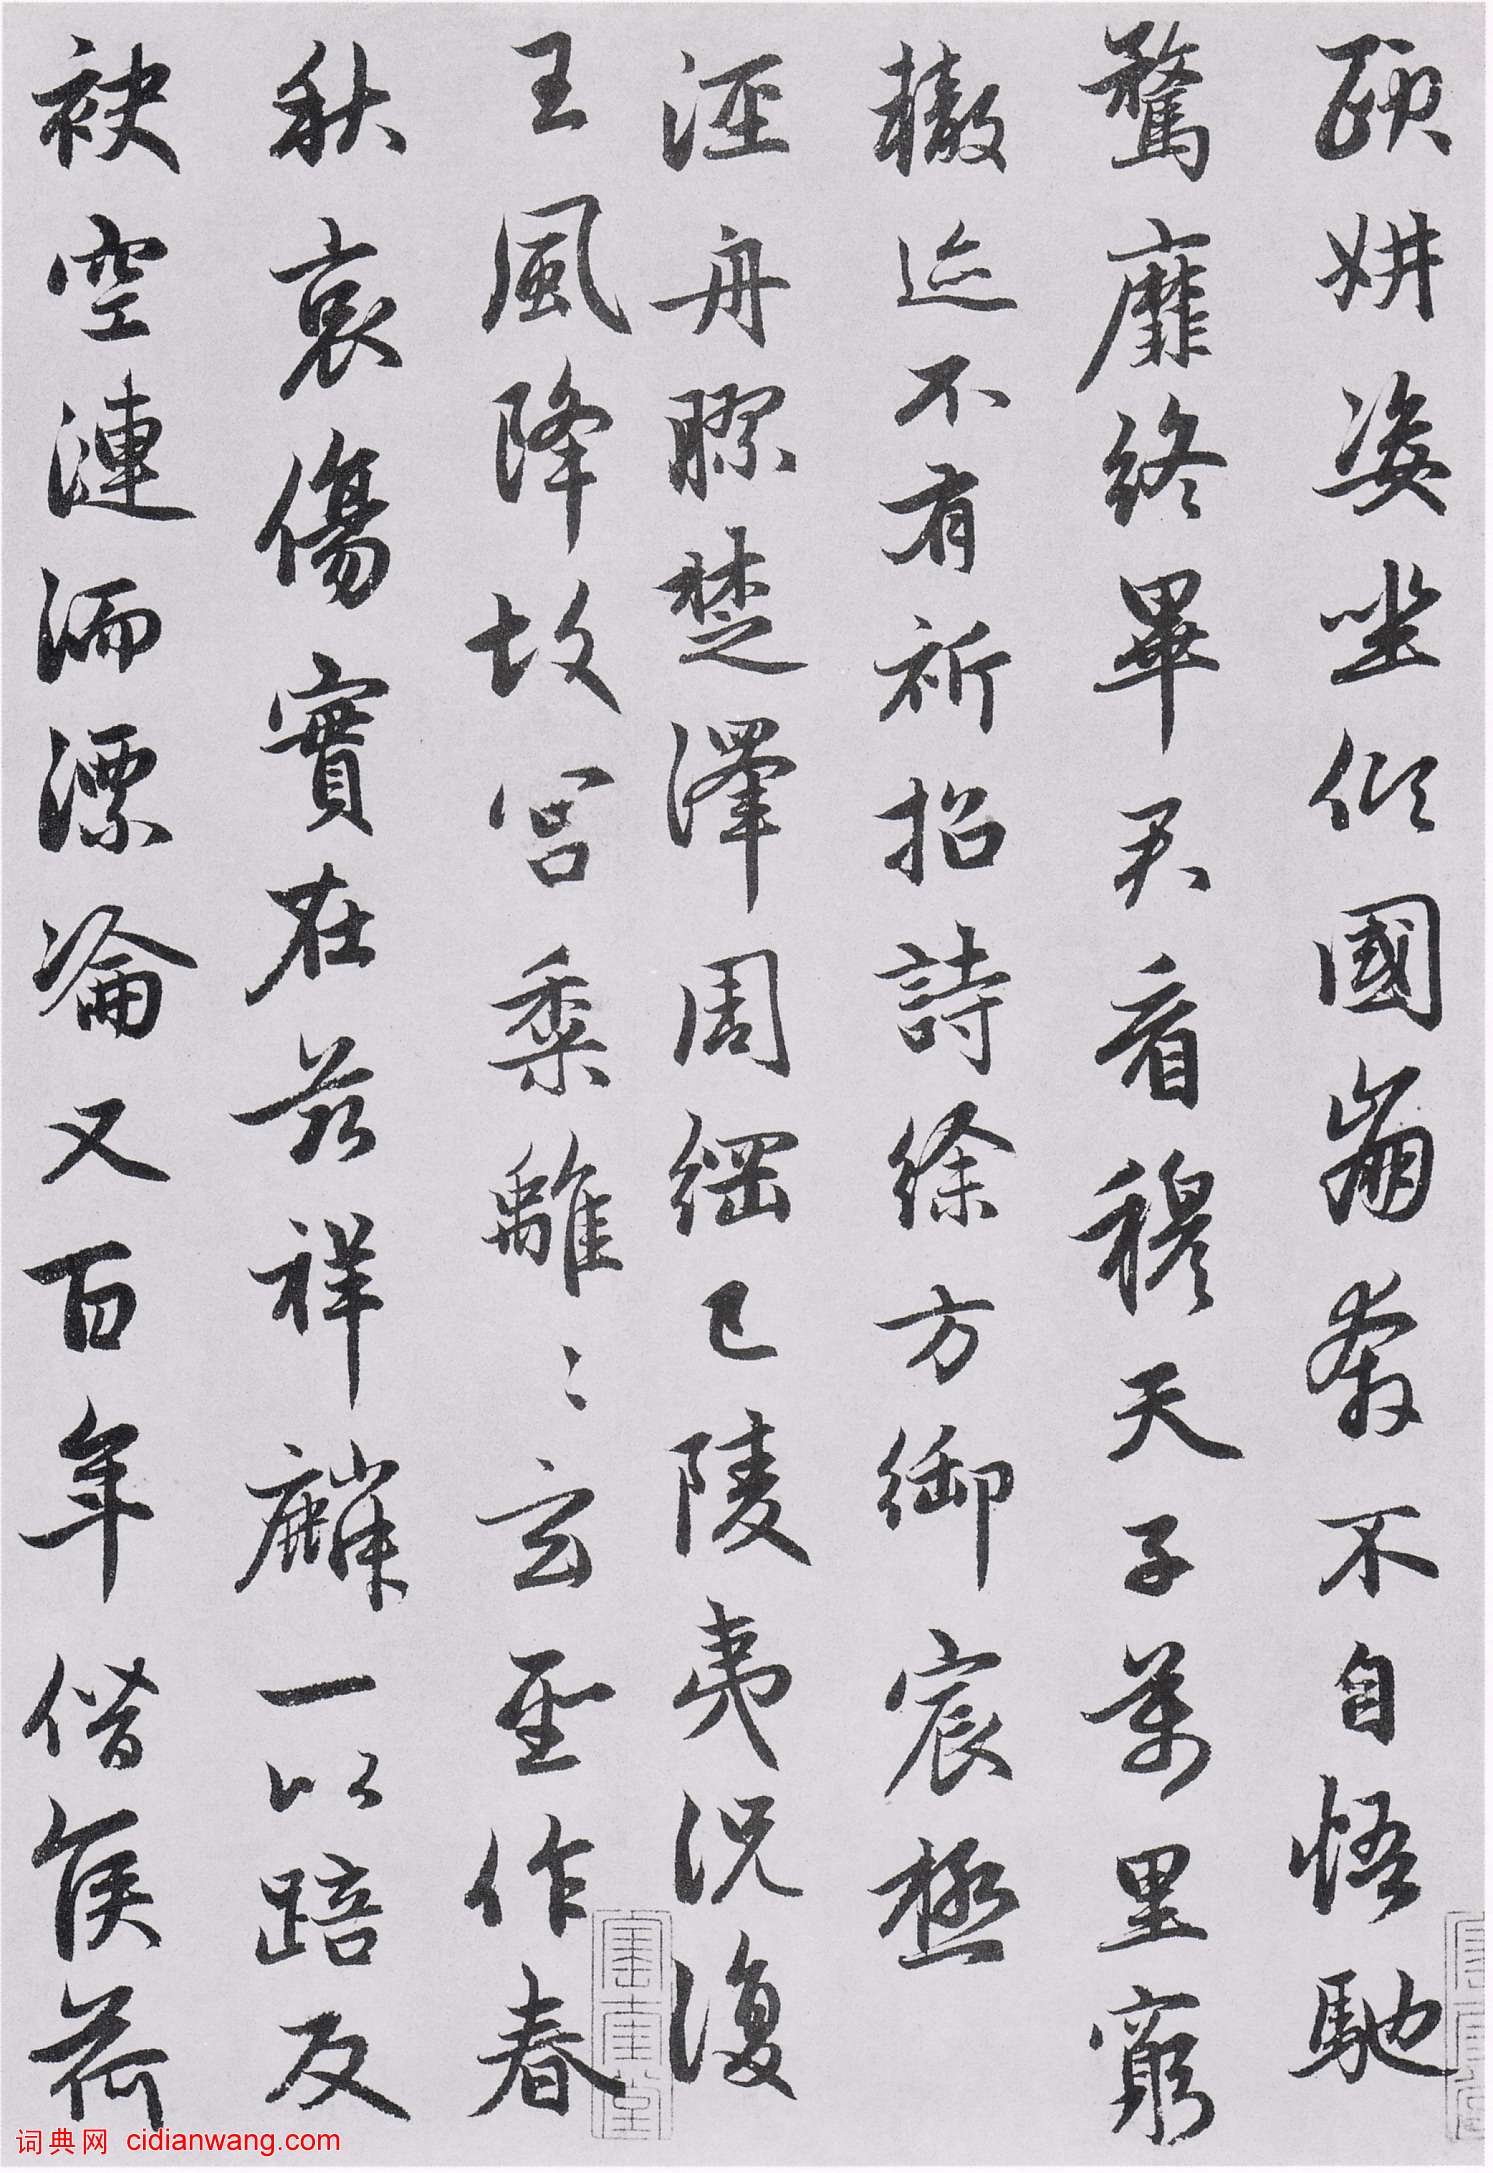 頤妍姿坐傾國崩奔不自悟馳
騖靡終畢君看穆天子萬里窮
轍迹不有祈招詩徐方御宸極
涇舟膠楚澤周綱已陵夷況復
王風降故宮黍離〻玄聖作春
秋哀傷實在茲祥麟一以踣反
袂空漣洏漂淪又百年僭侯荷
词典网 cidianwang.com